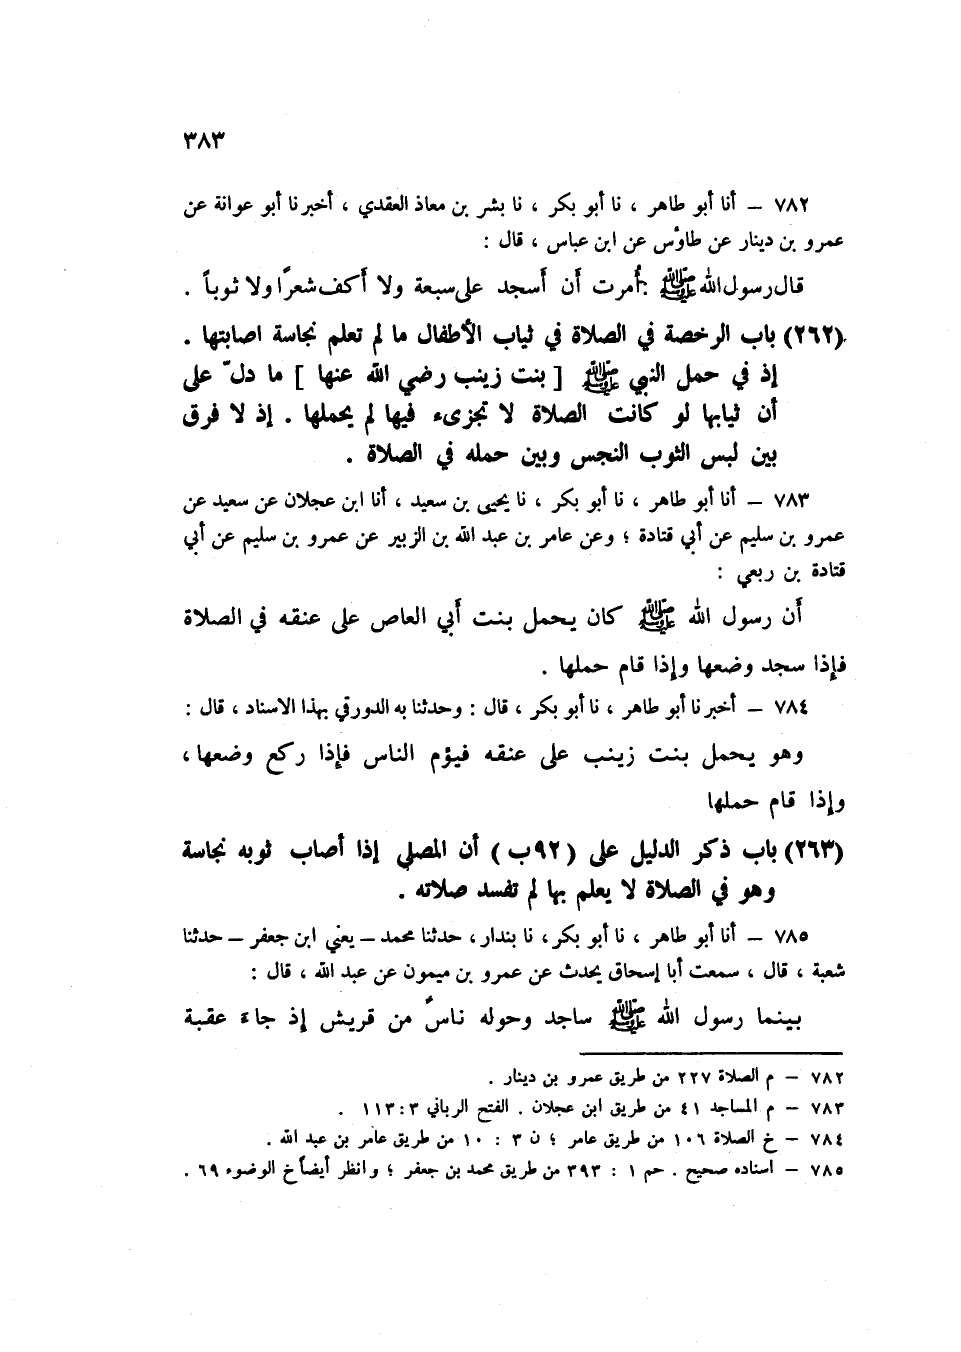 ٣٨٣
٧٨٢ – أنا أبو طاهر ، نا أبو بكر ، نا بشر بن معاذ العقدي ، أخبرنا أبو عوانة عن
عمرو بن دينار عن طاوُس عن ابن عباس ، قال :
قال رسول الله ﷺ : أُمرت أن أسجد على سبعة ولا أكف شعراً ولا ثوباً .
(٢٦٢) باب الرخصة في الصلاة في ثياب الأطفال ما لم تعلم نجاسة اصابتها .
إذ في حمل النبي ﷺ [ بنت زينب رضي الله عنها ] ما دلّ على
أن ثيابها لو كانت الصلاة لا تجزىء فيها لم يحملها . إذ لا فرق
بين لبس الثوب النجس وبين حمله في الصلاة .
٧٨٣ – أنا أبو طاهر ، نا أبو بكر ، نا يحيى بن سعيد ، أنا ابن عجلان عن سعيد عن
عمرو بن سليم عن أبي قتادة ؛ وعن عامر بن عبد الله بن الزبير عن عمرو بن سليم عن أبي
قتادة بن ربعي :
أن رسول الله ﷺ كان يحمل بنت أبي العاص على عنقه في الصلاة
فإذا سجد وضعها وإذا قام حملها .
٧٨٤ – أخبرنا أبو طاهر ، نا أبو بكر ، قال : وحدثنا به الدورقي بهذا الاسناد ، قال :
وهو يحمل بنت زينب على عنقه فيؤم الناس فإذا ركع وضعها ،
وإذا قام حملها
(٢٦٣) باب ذكر الدليل على (٩٢ب ) أن المصلي إذا أصاب ثوبه نجاسة
وهو في الصلاة لا يعلم بها لم تفسد صلاته .
٧٨٥ – أنا أبو طاهر ، نا أبو بكر ، نا بندار ، حدثنا محمد – يعني ابن جعفر – حدثنا
شعبة ، قال ، سمعت أبا إسحاق يحدث عن عمرو بن ميمون عن عبد الله ، قال :
بينما رسول الله ﷺ ساجد وحوله ناسٌ من قريش إذ جاء عقبة
٧٨٢ – م الصلاة ٢٢٧ من طريق عمرو بن دينار .
٧٨٣ – م المساجد ٤١ من طريق ابن عجلان . الفتح الرباني ٣ : ١١٣ .
٧٨٤ – خ الصلاة ١٠٦ من طريق عامر ؛ ن ٣ : ١٠ من طريق عامر بن عبد الله .
٧٨٥ – اسناده صحيح . حم ١ : ٣٩٣ من طريق محمد بن جعفر ؛ وانظر أيضاً خ الوضوء ٦٩ .